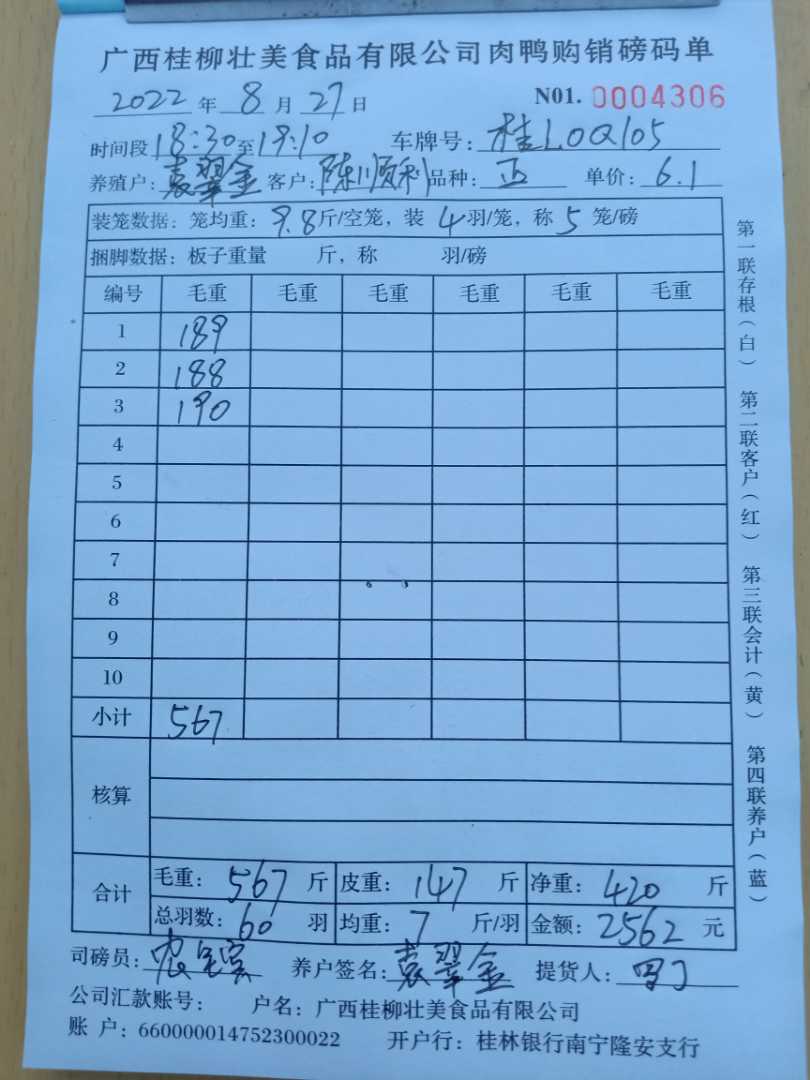 广西桂柳壮美食品有限公司肉鸭购销磅码单
2022年8月27日 N01. 0004306
时间段18:30至19:10 车牌号：桂L0Q105
养殖户：袁翠金 客户：陈顺利 品种：正 单价：6.1
装笼数据：笼均重：9.8斤/空笼，装4羽/笼，称5笼/磅
捆脚数据：板子重量 斤，称 羽/磅
编号 毛重 毛重 毛重 毛重 毛重 毛重
1 189
2 188
3 190
4
5
6
7
8
9
10
小计 567
核算
合计 毛重：567斤 皮重：147斤 净重：420斤
总羽数：60羽 均重：7斤/羽 金额：2562元
司磅员： 养户签名：袁翠金 提货人：
公司汇款账号： 户名：广西桂柳壮美食品有限公司
账 户：660000014752300022 开户行：桂林银行南宁隆安支行
第一联存根（白） 第二联客户（红） 第三联会计（黄） 第四联养户（蓝）